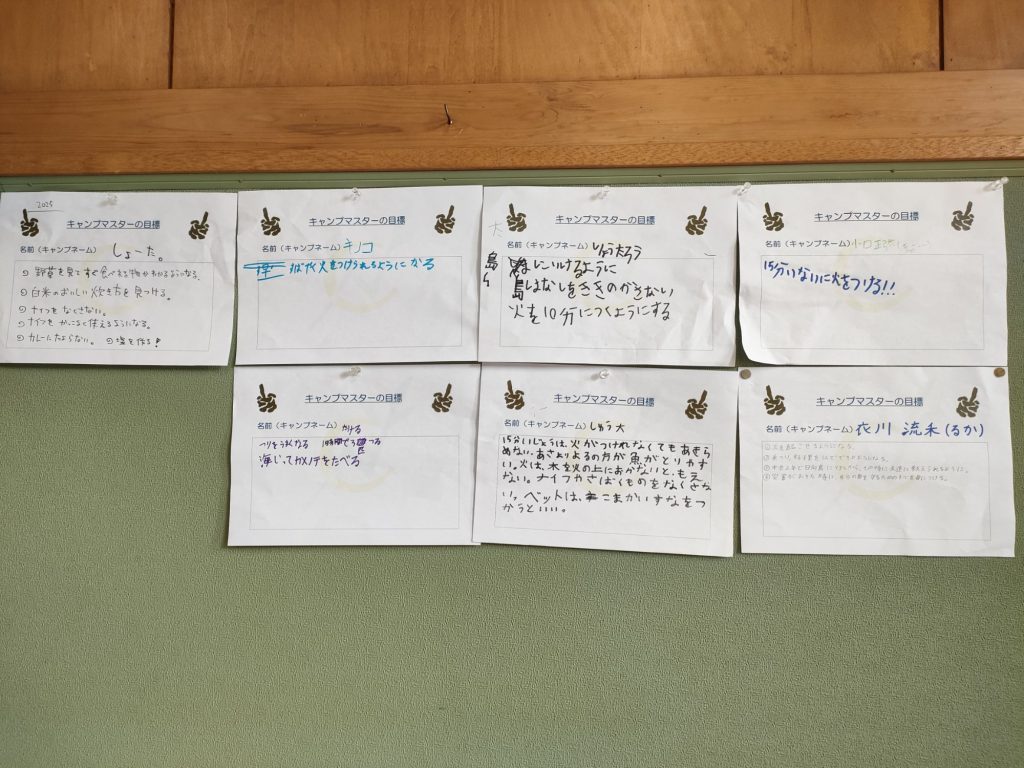 2025
キャンプマスターの目標
名前（キャンプネーム） しょーた。
野草を見てすぐ食べえる物かわかるようになる。
白米のおいしい炊き方を見つける。
ナイフをなくさない。
ナイフをかっこよく使えるようになる。
カレーにたよらない。 塩を作る！
キャンプマスターの目標
名前（キャンプネーム） キノコ
すばやく火をつけられるようになる
キャンプマスターの目標
名前（キャンプネーム） りゅう太ろう
大
島
島にいけるように
はなしをききのがさない
火を10分につくようにする
キャンプマスターの目標
名前（キャンプネーム）
15分いないに火をつける!!
キャンプマスターの目標
名前（キャンプネーム） かける
つりをうまくなる 1時間で
海じってカメノテをたべる
キャンプマスターの目標
名前（キャンプネーム） しゅう大
15分いじょうは、火がつけれなくてもあきら
めない。あさよりよるの方が魚がとりやす
い。火は、木を火の上におかないと、もえ
ない。ナイフやさばくものをなくさな
い。ベットは、こまかいすなをつ
かうといい。
キャンプマスターの目標
名前（キャンプネーム） 衣川 流禾(るか)
火を起こせるようになる。